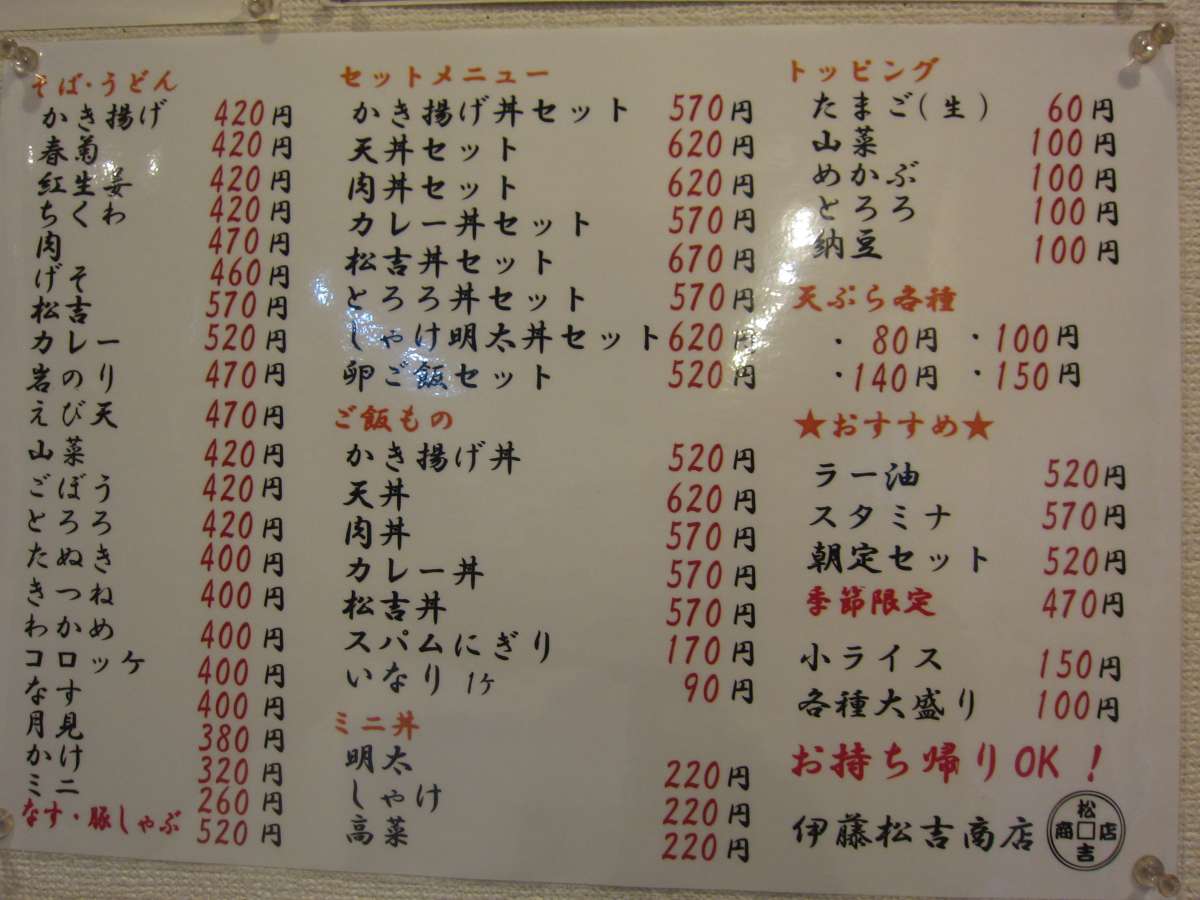 そば・うどん
かき揚げ 420円
春菊 420円
紅生姜 420円
ちくわ 420円
肉 470円
げそ 460円
松吉 570円
カレー 520円
岩のり 470円
えび天 470円
山菜 420円
ごぼう 420円
とろろ 420円
たぬき 400円
きつね 400円
わかめ 400円
コロッケ 400円
なす 400円
月見 380円
かけ 320円
ミニ 260円
なす・豚しゃぶ 520円
セットメニュー
かき揚げ丼セット 570円
天丼セット 620円
肉丼セット 620円
カレー丼セット 570円
松吉丼セット 670円
とろろ丼セット 570円
しゃけ明太丼セット 620円
卵ご飯セット 520円
ご飯もの
かき揚げ丼 520円
天丼 620円
肉丼 570円
カレー丼 570円
松吉丼 570円
スパムにぎり 170円
いなり 1ケ 90円
ミニ丼
明太 220円
しゃけ 220円
高菜 220円
トッピング
たまご(生) 60円
山菜 100円
めかぶ 100円
とろろ 100円
納豆 100円
天ぷら各種
・80円 ・100円
・140円 ・150円
★おすすめ★
ラー油 520円
スタミナ 570円
朝定セット 520円
季節限定 470円
小ライス 150円
各種大盛り 100円
お持ち帰りOK！
伊藤松吉商店
松
商口店
吉